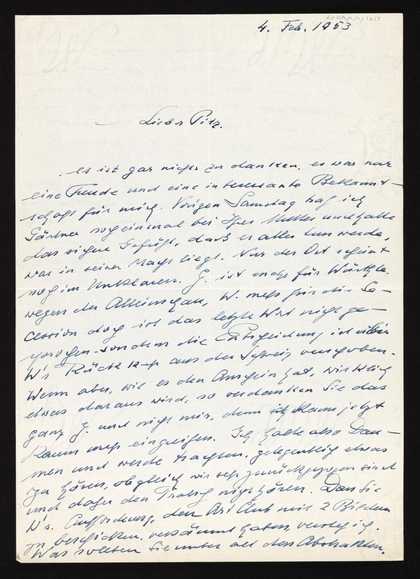 4. Feb. 1953
Lieber Pitz.
es ist gar nichts zu danken, es war nur
eine Freude und eine interessante Bekannt-
schaft für mich. Vorigen Samstag hab ich
Gärtner noch einmal bei Ihrer Mutter und hatte
das sichere Gefühl, dass er alles tun werde,
was in seiner Macht liegt. Nur der Ort scheint
noch im Unklaren. G. ist mehr für Würthle
wegen der Alleinschau, W. mehr für die Se-
cession doch ist das letzte Wort nicht ge-
sprochen sondern die Entscheidung ist
W's Rückkehr aus der Schweiz verschoben.
Wenn aber, wie es den Anschein hat, wirklich
etwas daraus wird, so verdanken Sie das
ganz G. und nicht mir, denn ich kann jetzt
kaum mehr eingreifen. Ich halte also Dau-
men und werde trachten, gelegentlich etwas
zu hören, obgleich wir sehr zurückgezogen sind
und daher den nicht hören. Dass Sie
W's Aufforderung, den Art Club mit 2 Bildern
zu beschicken, versäumt haben, verstehe ich.
Was sollten Sie unter all den Abstrakten.